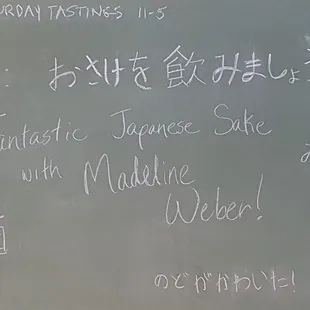 URDAY TASTINGS 11-5
: おさけを飲みましょ
antastic Japanese Sake
with Madeline
Weber!
のどがかわいた!